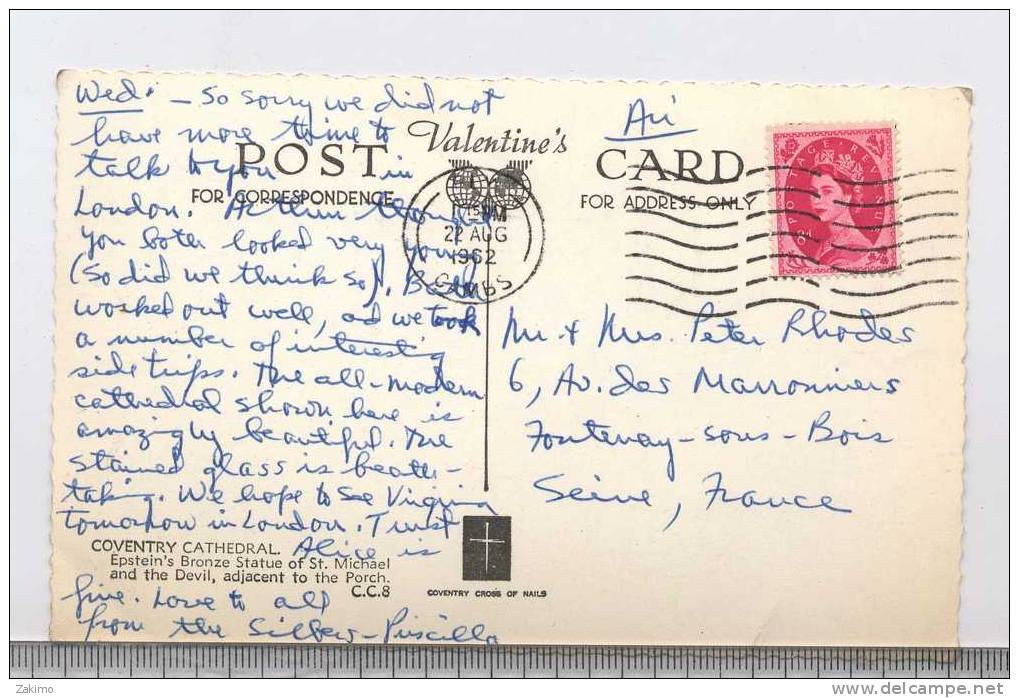 Wed. – So sorry we did not
have more time to
talk to you in
London.
You both looked very young
(so did we think so).
worked out well, and we took
a number of interesting
side trips. The all-modern
cathedral shown here is
amazingly beautiful. The
stained glass is breath-
taking. We hope to see Virginia
tomorrow in London. Trust
Alice is
fine. Love to all
from the Silbers – Priscilla
Valentine's
POST CARD
FOR CORRESPONDENCE
FOR ADDRESS ONLY
Air
POSTAGE REVENUE
8D
PM
22 AUG
1962
Mr. + Mrs. Peter Rhodes
6, Av. des Marronniers
Fontenay-sous-Bois
Seine, France
COVENTRY CATHEDRAL.
Epstein's Bronze Statue of St. Michael
and the Devil, adjacent to the Porch.
C.C.8
COVENTRY CROSS OF NAILS
Zakimo
www.delcampe.net